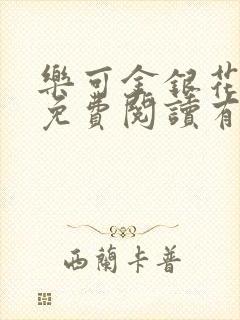 樂可金銀花
免費閱讀有
西蘭卡普